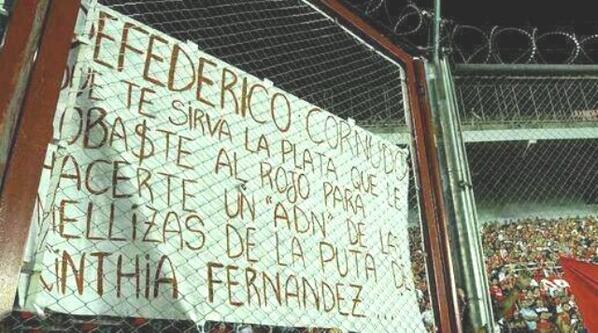 DEFEDERICO: CORNUDO
QUE TE SIRVA LA PLATA QUE LE
ROBA$TE AL ROJO PARA
HACERTE UN "ADN" DE LAS
MELLIZAS DE LA PUTA DE
CINTHIA FERNANDEZ...